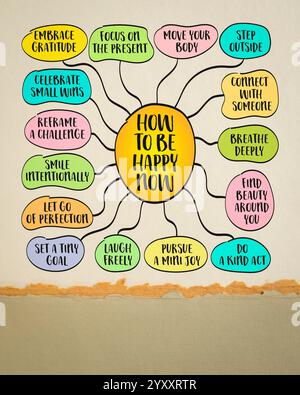 EMBRACE
GRATITUDE
FOCUS ON
THE PRESENT
MOVE YOUR
BODY
STEP
OUTSIDE
CELEBRATE
SMALL WINS
CONNECT
WITH
SOMEONE
REFRAME
A CHALLENGE
HOW
TO BE
HAPPY
NOW
BREATHE
DEEPLY
SMILE
INTENTIONALLY
FIND
BEAUTY
AROUND
YOU
LET GO
OF PERFECTION
SET A TINY
GOAL
LAUGH
FREELY
PURSUE
A MINI JOY
DO
A KIND ACT
alamy
Image ID: 2YXXRTR
www.alamy.com